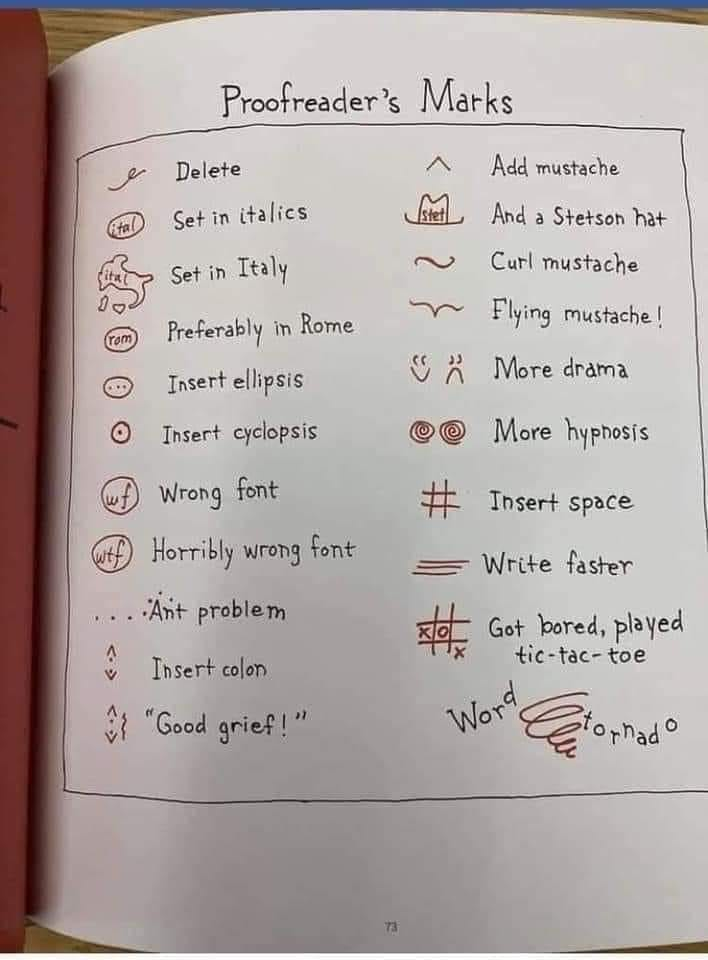 Proofreader's Marks
Delete
ital Set in italics
ital Set in Italy
rom Preferably in Rome
Insert ellipsis
Insert cyclopsis
wf Wrong font
wtf Horribly wrong font
....Ant problem
Insert colon
"Good grief!"
^ Add mustache
stet And a Stetson hat
~ Curl mustache
Flying mustache!
More drama
More hypnosis
# Insert space
Write faster
xo Got bored, played
x tic-tac-toe
Word tornado
73